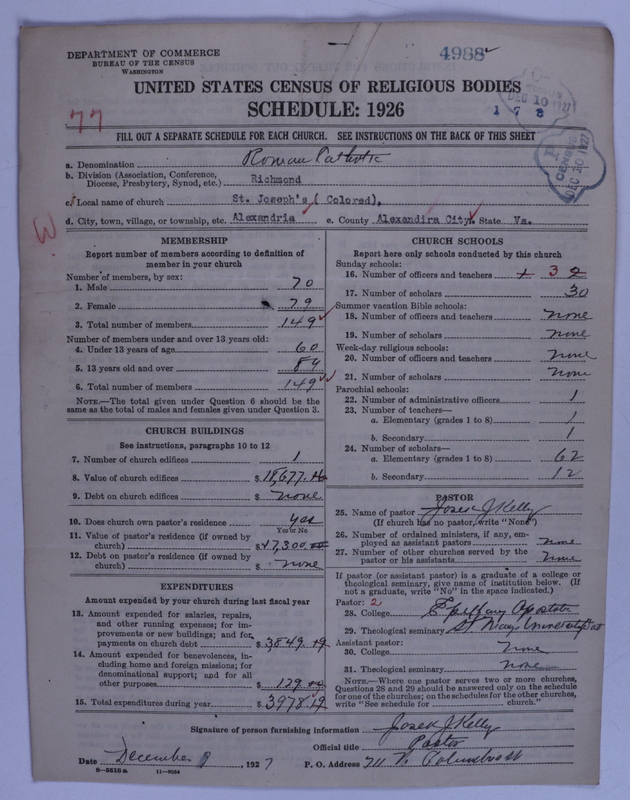 DEPARTMENT OF COMMERCE
BUREAU OF THE CENSUS
WASHINGTON
4988
UNITED STATES CENSUS OF RELIGIOUS BODIES
SCHEDULE: 1926
DEC 10 1927
1 7 8
77
FILL OUT A SEPARATE SCHEDULE FOR EACH CHURCH. SEE INSTRUCTIONS ON THE BACK OF THIS SHEET
CENSUS
DEC 10 1927
a. Denomination Roman Catholic
b. Division (Association, Conference, Diocese, Presbytery, Synod, etc.) Richmond
c. Local name of church St. Joseph's (Colored),
d. City, town, village, or township, etc. Alexandria e. County Alexandira City. State Va.
W
MEMBERSHIP
Report number of members according to definition of
member in your church
Number of members, by sex:
1. Male 70
2. Female 79
3. Total number of members 149
Number of members under and over 13 years old:
4. Under 13 years of age 60
5. 13 years old and over 89
6. Total number of members 149
NOTE.—The total given under Question 6 should be the
same as the total of males and females given under Question 3.
CHURCH BUILDINGS
See instructions, paragraphs 10 to 12
7. Number of church edifices 1
8. Value of church edifices $
9. Debt on church edifices $ none
10. Does church own pastor's residence yes
Yes or No
11. Value of pastor's residence (if owned by
church) $
12. Debt on pastor's residence (if owned by
church) $ none
EXPENDITURES
Amount expended by your church during last fiscal year
13. Amount expended for salaries, repairs,
and other running expenses; for im-
provements or new buildings; and for
payments on church debt $ 3849.19
14. Amount expended for benevolences, in-
cluding home and foreign missions; for
denominational support; and for all
other purposes $ 129.
15. Total expenditures during year $ 3978.19
CHURCH SCHOOLS
Report here only schools conducted by this church
Sunday schools:
16. Number of officers and teachers + 3 2
17. Number of scholars 30
Summer vacation Bible schools:
18. Number of officers and teachers none
19. Number of scholars none
Week-day religious schools:
20. Number of officers and teachers none
21. Number of scholars none
Parochial schools:
22. Number of administrative officers 1
23. Number of teachers—
a. Elementary (grades 1 to 8) 1
b. Secondary 1
24. Number of scholars—
a. Elementary (grades 1 to 8) 62
b. Secondary 12
PASTOR
25. Name of pastor Joseph J Kelly
(If church has no pastor, write "None")
26. Number of ordained ministers, if any, em-
ployed as assistant pastors none
27. Number of other churches served by the
pastor or his assistants none
If pastor (or assistant pastor) is a graduate of a college or
theological seminary, give name of institution below. (If
not a graduate, write "No" in the space indicated.)
Pastor: 2
28. College Epiphany Apostolic
29. Theological seminary St Mary University
Assistant pastor:
30. College None
31. Theological seminary none
NOTE.—Where one pastor serves two or more churches,
Questions 28 and 29 should be answered only on the schedule
for one of the churches; on the schedules for the other churches,
write "See schedule for church."
Signature of person furnishing information Joseph J Kelly
Official title Pastor
Date December 9, 1927 P. O. Address 711 N. Columbus St
8-5518a 11-9054